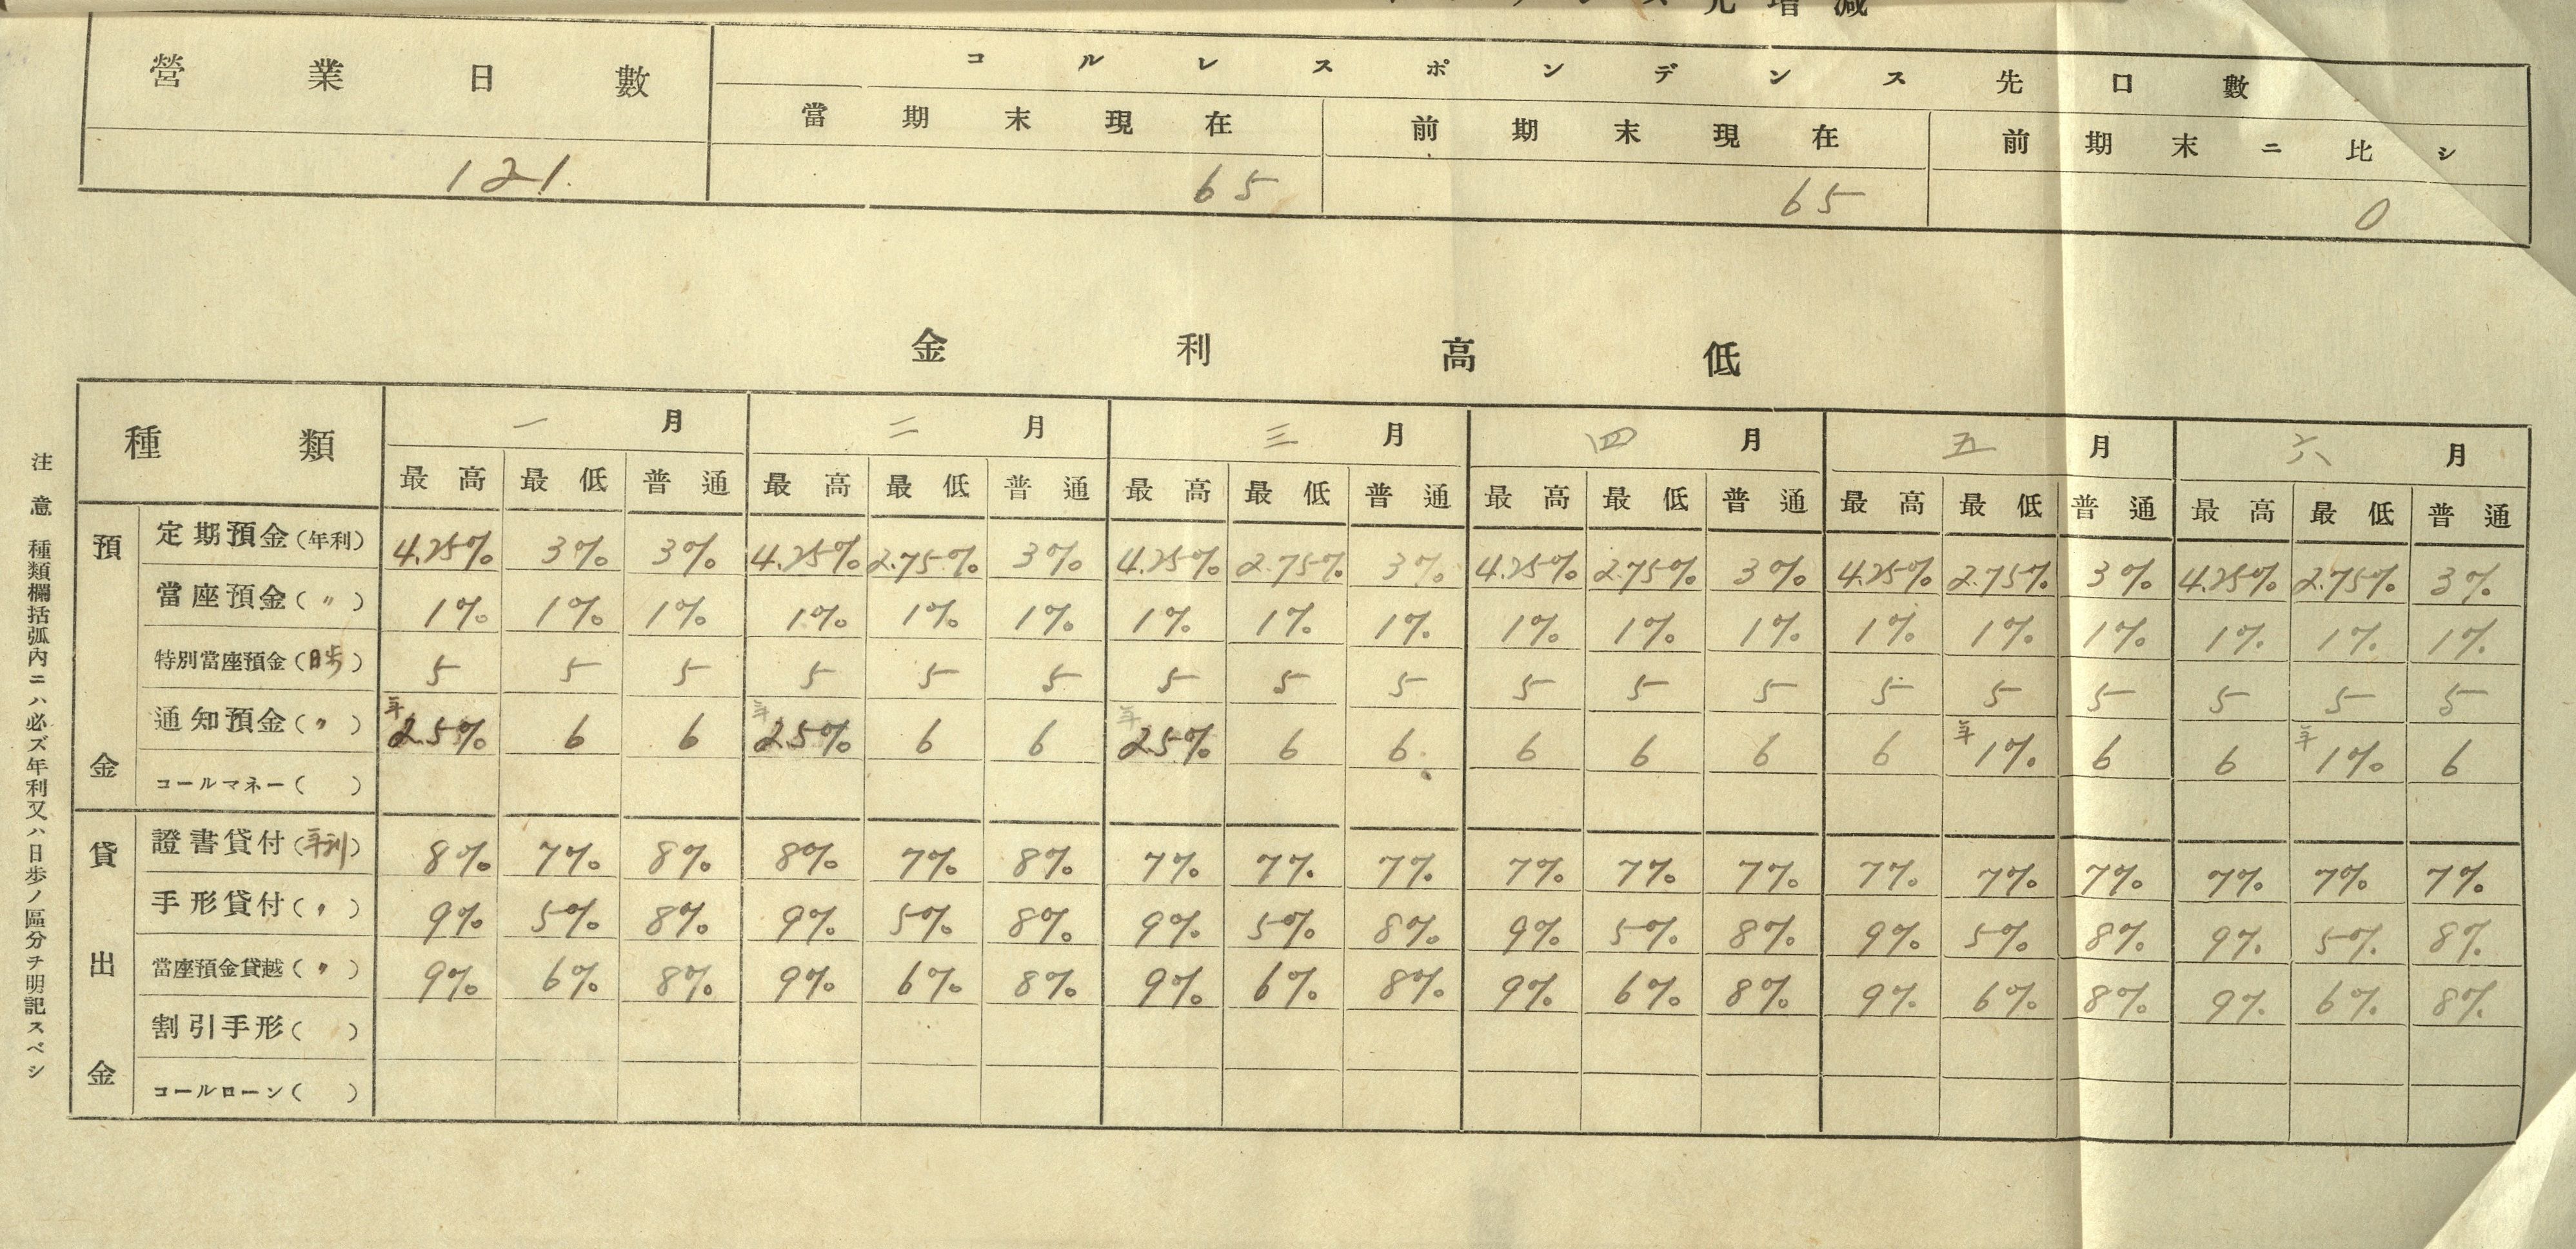 先增減
營業日數 コルレスポンデンス先口數
當期末現在 前期末現在 前期末ニ比シ
121. 65 65 0
金利高低
種類 一月 二月 三月 四月 五月 六月
最高 最低 普通 最高 最低 普通 最高 最低 普通 最高 最低 普通 最高 最低 普通 最高 最低 普通
預金
定期預金(年利) 4.25% 3% 3% 4.25% 2.75% 3% 4.25% 2.75% 3% 4.25% 2.75% 3% 4.25% 2.75% 3% 4.25% 2.75% 3%
當座預金(〃) 1% 1% 1% 1% 1% 1% 1% 1% 1% 1% 1% 1% 1% 1% 1% 1% 1% 1%
特別當座預金(日歩) 5 5 5 5 5 5 5 5 5 5 5 5 5 5 5 5 5 5
通知預金(〃) 年2.5% 6 6 年2.5% 6 6 年2.5% 6 6 6 6 6 6 年1% 6 6 年1% 6
コールマネー( )
貸出金
證書貸付(年利) 8% 7% 8% 8% 7% 8% 7% 7% 7% 7% 7% 7% 7% 7% 7% 7% 7% 7%
手形貸付(〃) 9% 5% 8% 9% 5% 8% 9% 5% 8% 9% 5% 8% 9% 5% 8% 9% 5% 8%
當座預金貸越(〃) 9% 6% 8% 9% 6% 8% 9% 6% 8% 9% 6% 8% 9% 6% 8% 9% 6% 8%
割引手形( )
コールローン( )
注意 種類欄括弧内ニハ必ズ年利又ハ日歩ノ區分ヲ明記スベシ